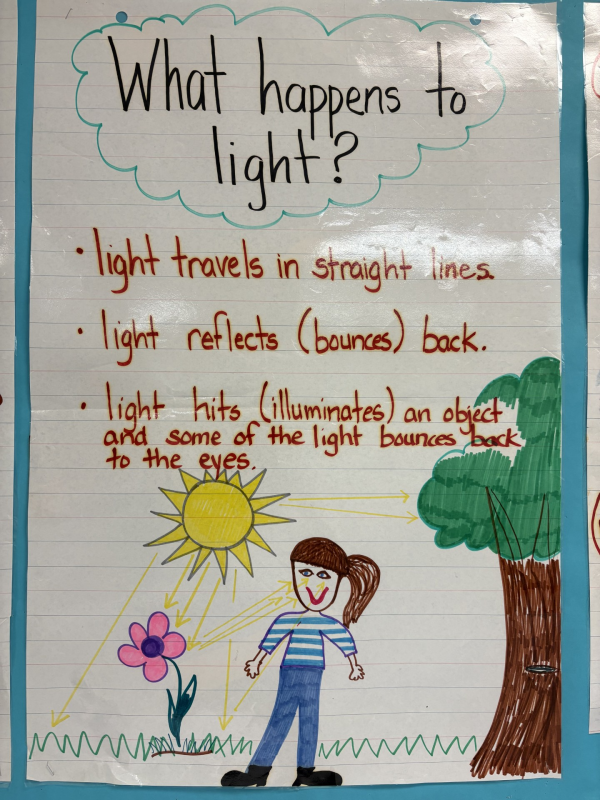 What happens to
light?
• light travels in straight lines.
• light reflects (bounces) back.
• light hits (illuminates) an object
and some of the light bounces back
to the eyes.